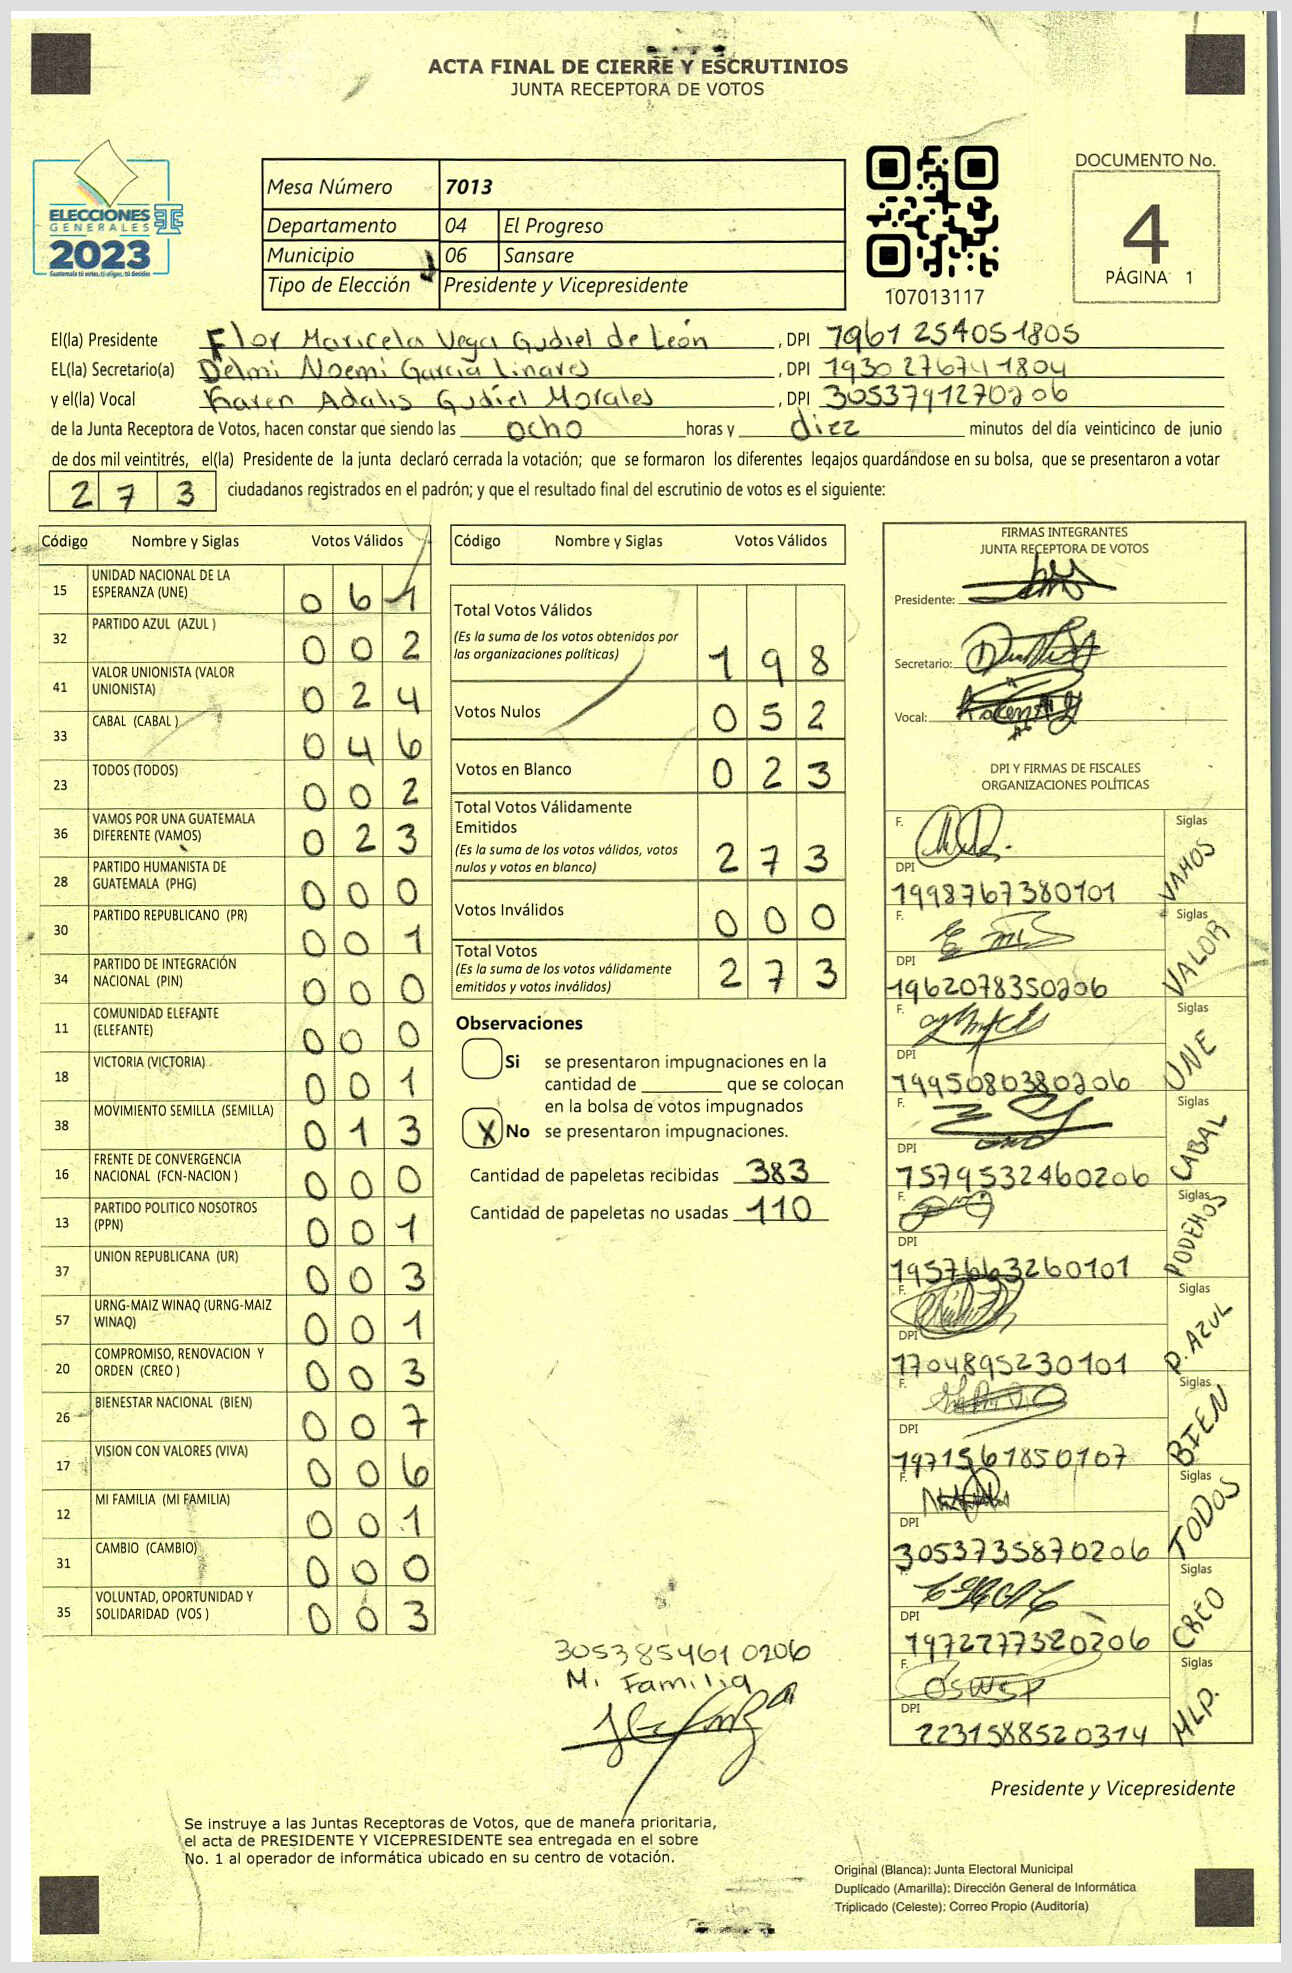 ACTA FINAL DE CIERRE Y ESCRUTINIOS
JUNTA RECEPTORA DE VOTOS
ELECCIONES
GENERALES
2023
Guatemala tú votas, tú eliges, tú decides
Mesa Número 7013
Departamento 04 El Progreso
Municipio 06 Sansare
Tipo de Elección Presidente y Vicepresidente
107013117
DOCUMENTO No.
4
PÁGINA 1
El(la) Presidente Flor Maricela Vega Gudiel de León, DPI 7961 25405 1805
EL(la) Secretario(a) Delmi Noemi García Linares, DPI 1930 27674 1804
y el(la) Vocal Karen Adalis Gudiel Morales, DPI 3053791270206
de la Junta Receptora de Votos, hacen constar que siendo las ocho horas y diez minutos del día veinticinco de junio
de dos mil veintitrés, el(la) Presidente de la junta declaró cerrada la votación; que se formaron los diferentes legajos quardándose en su bolsa, que se presentaron a votar
2 7 3 ciudadanos registrados en el padrón; y que el resultado final del escrutinio de votos es el siguiente:
Código Nombre y Siglas Votos Válidos
15 UNIDAD NACIONAL DE LA
ESPERANZA (UNE) 0 6 1
32 PARTIDO AZUL (AZUL ) 0 0 2
41 VALOR UNIONISTA (VALOR
UNIONISTA) 0 2 4
33 CABAL (CABAL ) 0 4 6
23 TODOS (TODOS) 0 0 2
36 VAMOS POR UNA GUATEMALA
DIFERENTE (VAMOS) 0 2 3
28 PARTIDO HUMANISTA DE
GUATEMALA (PHG) 0 0 0
30 PARTIDO REPUBLICANO (PR) 0 0 1
34 PARTIDO DE INTEGRACIÓN
NACIONAL (PIN) 0 0 0
11 COMUNIDAD ELEFANTE
(ELEFANTE) 0 0 0
18 VICTORIA (VICTORIA) 0 0 1
38 MOVIMIENTO SEMILLA (SEMILLA) 0 1 3
16 FRENTE DE CONVERGENCIA
NACIONAL (FCN-NACION ) 0 0 0
13 PARTIDO POLITICO NOSOTROS
(PPN) 0 0 1
37 UNION REPUBLICANA (UR) 0 0 3
57 URNG-MAIZ WINAQ (URNG-MAIZ
WINAQ) 0 0 1
20 COMPROMISO, RENOVACION Y
ORDEN (CREO ) 0 0 3
26 BIENESTAR NACIONAL (BIEN) 0 0 7
17 VISION CON VALORES (VIVA) 0 0 6
12 MI FAMILIA (MI FAMILIA) 0 0 1
31 CAMBIO (CAMBIO) 0 0 0
35 VOLUNTAD, OPORTUNIDAD Y
SOLIDARIDAD (VOS ) 0 0 3
Código Nombre y Siglas Votos Válidos
Total Votos Válidos
(Es la suma de los votos obtenidos por
las organizaciones políticas) 1 9 8
Votos Nulos 0 5 2
Votos en Blanco 0 2 3
Total Votos Válidamente
Emitidos
(Es la suma de los votos válidos, votos
nulos y votos en blanco) 2 7 3
Votos Inválidos 0 0 0
Total Votos
(Es la suma de los votos válidamente
emitidos y votos inválidos) 2 7 3
Observaciones
Si se presentaron impugnaciones en la
cantidad de ________ que se colocan
en la bolsa de votos impugnados
X No se presentaron impugnaciones.
Cantidad de papeletas recibidas 383
Cantidad de papeletas no usadas 110
3053854610206
Mi Familia
FIRMAS INTEGRANTES
JUNTA RECEPTORA DE VOTOS
Presidente:
Secretario:
Vocal:
DPI Y FIRMAS DE FISCALES
ORGANIZACIONES POLÍTICAS
F. Siglas
DPI VAMOS
1998767380101
F. Siglas
DPI VALOR
1962078350206
F. Siglas
DPI UNE
1995080380206
F. Siglas
DPI CABAL
7579532460206
F. Siglas
DPI PODEMOS
1957663260101
Siglas
DPI P. AZUL
1704895230101
F. Siglas
DPI BIEN
1971561850107
F. Siglas
DPI TODOS
3053735870206
F. Siglas
DPI CREO
1972777320206
F. Siglas
DPI MLP.
2231588520314
Presidente y Vicepresidente
Se instruye a las Juntas Receptoras de Votos, que de manera prioritaria,
el acta de PRESIDENTE Y VICEPRESIDENTE sea entregada en el sobre
No. 1 al operador de informática ubicado en su centro de votación.
Original (Blanca): Junta Electoral Municipal
Duplicado (Amarilla): Dirección General de Informática
Triplicado (Celeste): Correo Propio (Auditoría)